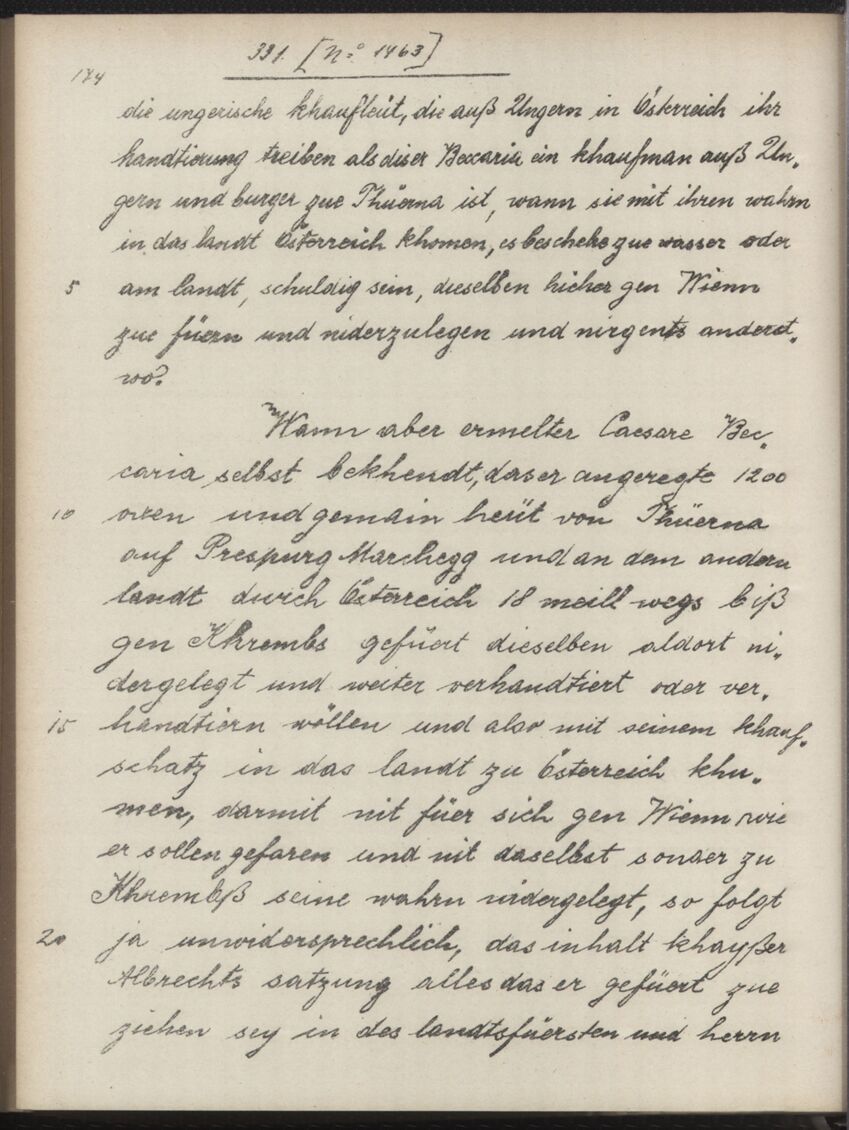 331. [No 1463]
174
die ungerische khaufleüt, die auß Ungern in Österreich ihr
handtierung treiben als diser Beccaria ein khaufman auß Un„
gern und burger zue Thüerna ist, wann sie mit ihren wahrn
in das landt Österreich khomen, es beschehe zue wasser oder
5 am landt, schuldig sein, dieselben hieher gen Wienn
zue füern und niderzulegen und nirgents anderst„
wo?
Wann aber ermelter Caesare Bec„
caria selbst bekhendt, das er angeregte 1200
10 oxen und gemain heüt von Thüerna
auf Prespurg Marchegg und an dem andern
landt durch Österreich 18 meill wegs biß
gen Khrembs gefüert dieselben aldort ni„
dergelegt und weiter verhandtiert oder ver„
15 handtiern wöllen und also mit seinem khauf„
schatz in das landt zu Österreich khu„
men, darmit nit füer sich gen Wienn wie
er sollen gefaren und nit daselbst sonder zu
Khrembß seine wahrn nidergelegt, so folgt
20 ja unwidersprechlich, das inhalt khayßer
Albrechts satzung alles das er gefüert zue
ziehen sey in des landtsfüersten und herrn